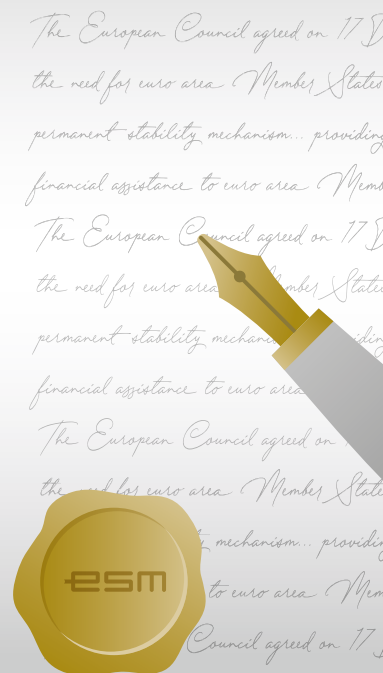 The European Council agreed on 17 D
the need for euro area Member States
permanent stability mechanism... providing
financial assistance to euro area Memb
The European Council agreed on 17 D
the need for euro area mber States
permanent stability mechani iding
financial assistance to euro area
The European Council agreed on
the need for euro area Member State
mechanism... providin
to euro area Mem
Council agreed on 17 D
esm